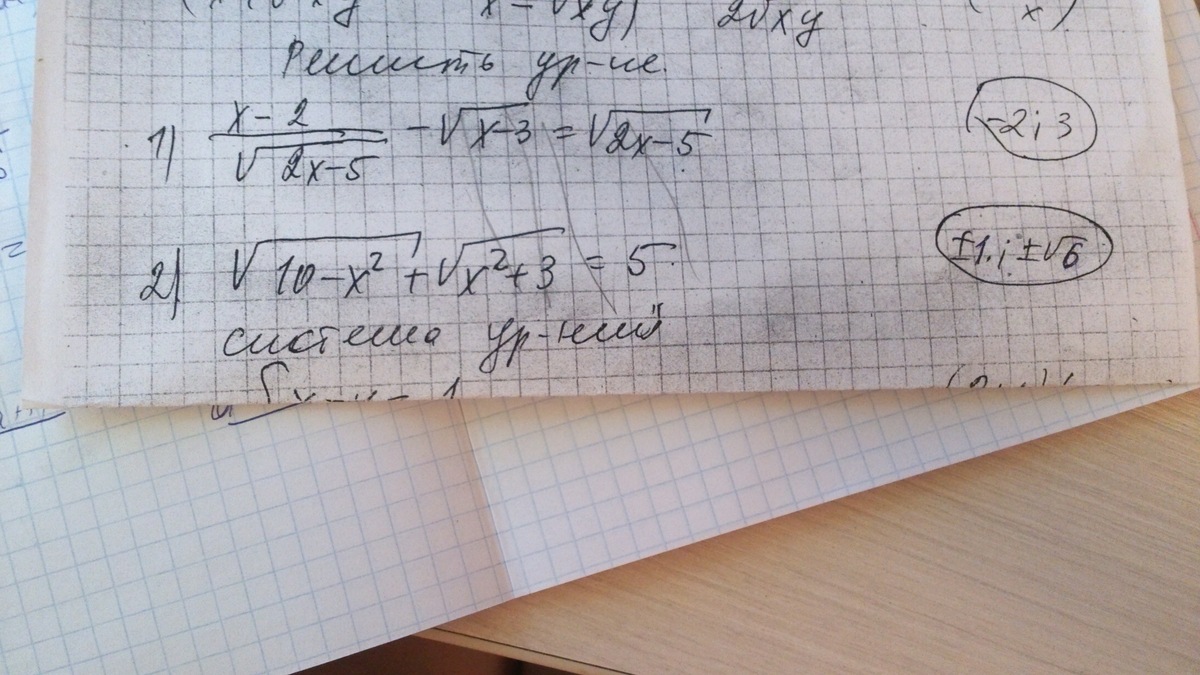 x - √xy) 2√xy x)
Решить ур-ие.
1) (x-2)/√(2x-5) - √(x-3) = √(2x-5) -2; 3
2) √(10-x²) + √(x²+3) = 5 ±1; ±√6
система ур-ний